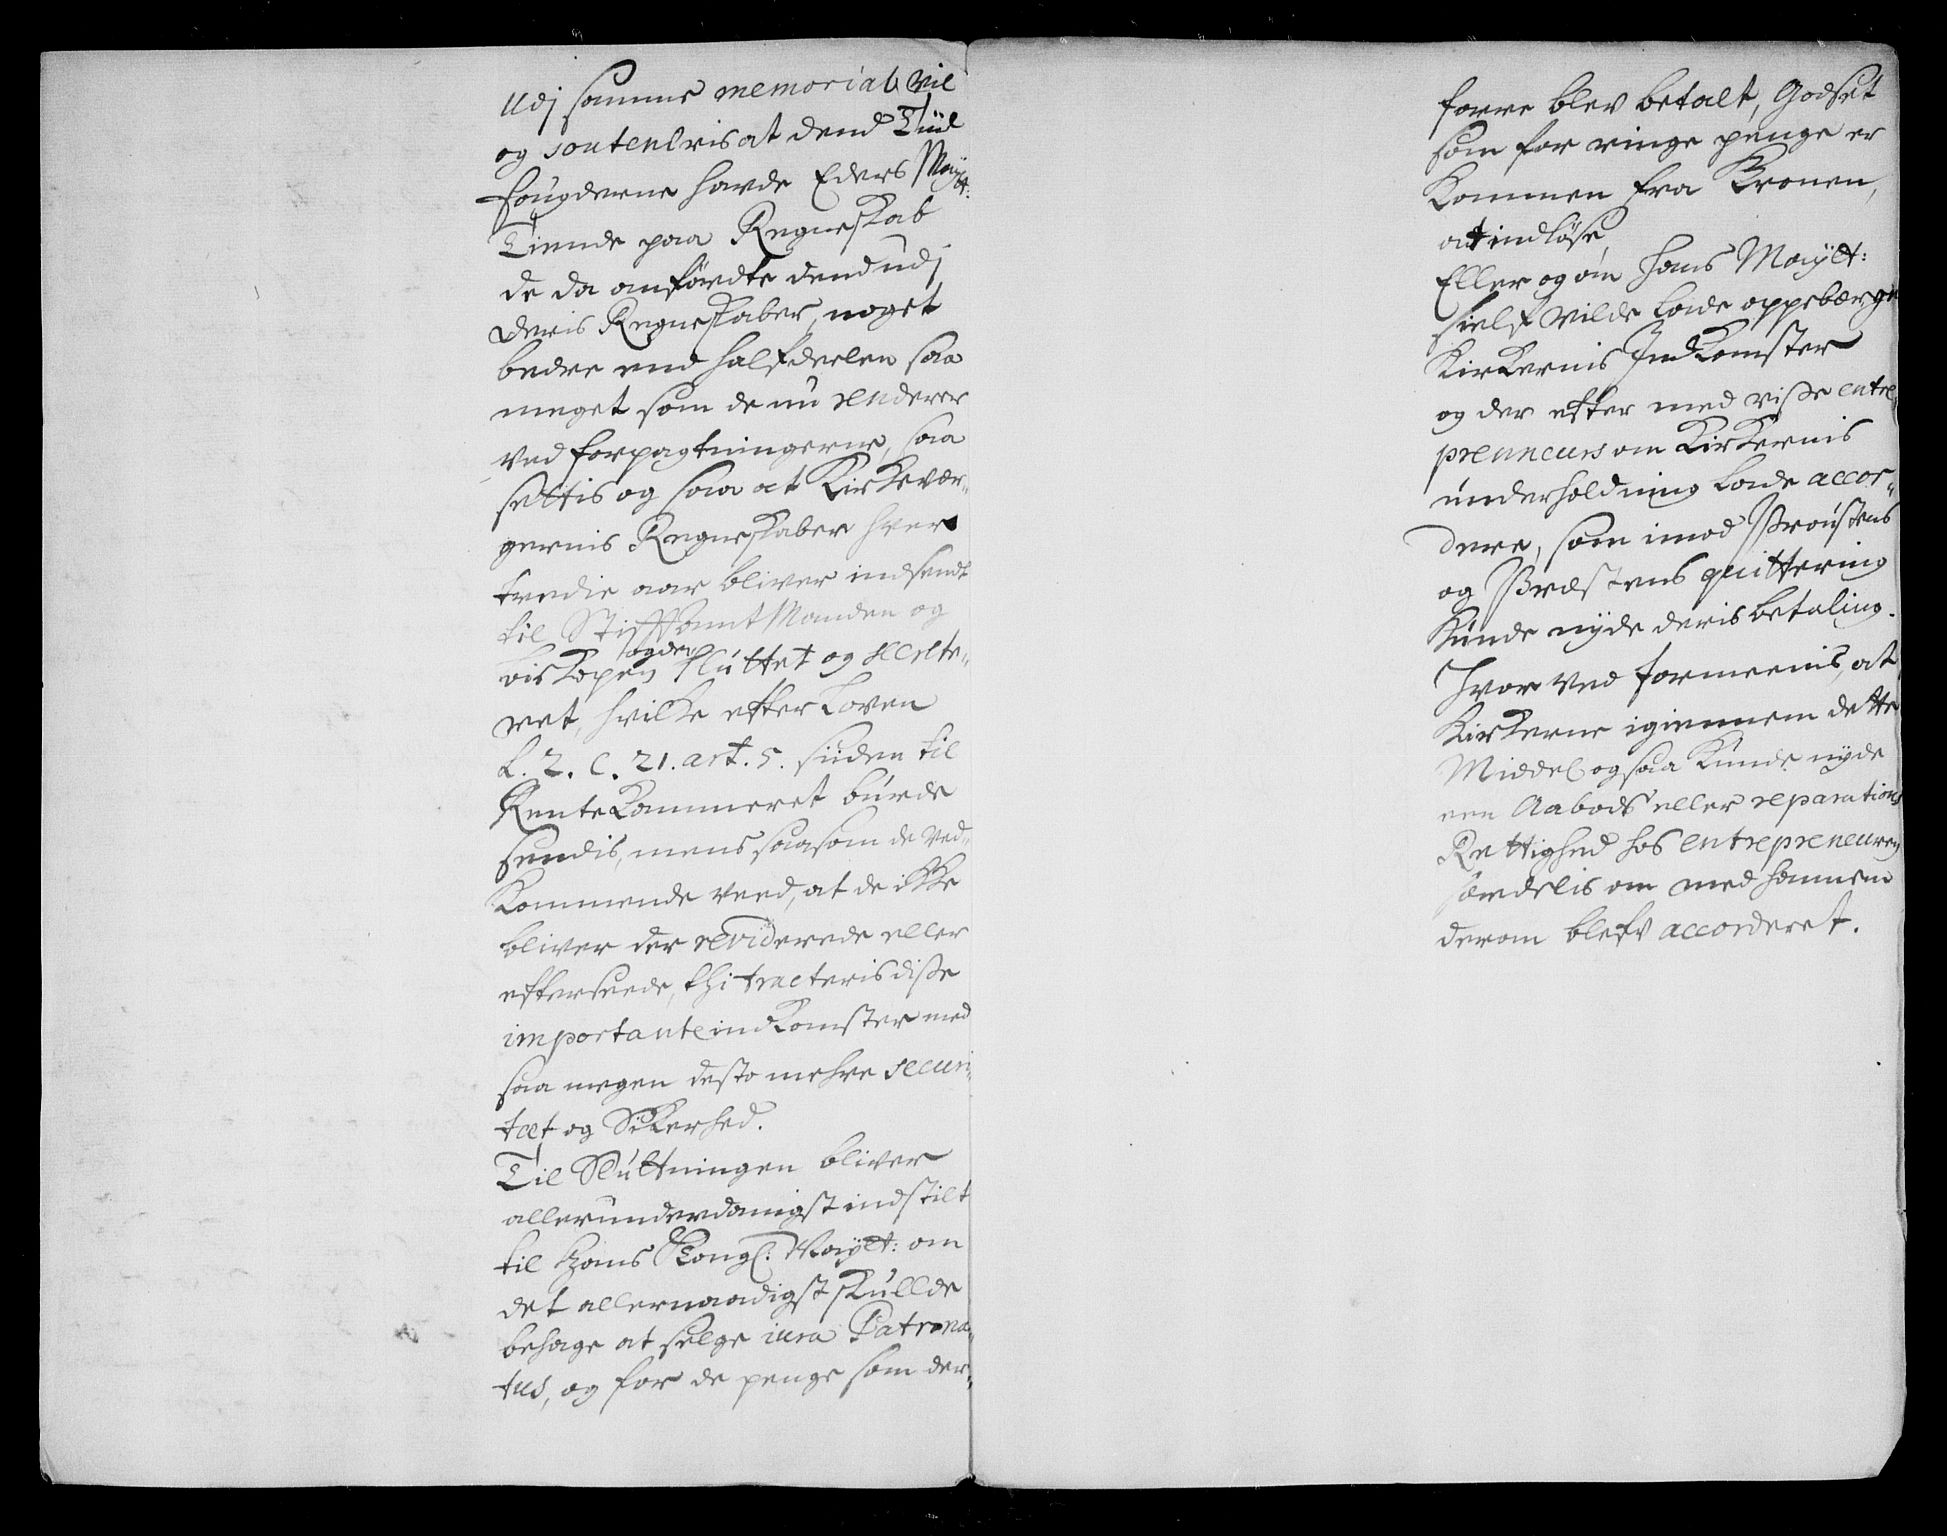 Udj samme memorial vil
og soutenlris at dend Tiid
fougderne hafde Eders Maÿtt:
Tiende paa Regneskab
de da anførdte dend udj
deris Regneskaber, noget
bedre end halfdeelen saa
meget som de nu renderer
ved forpagtningerne, saa
settis og saa at Kirkevær-
gernis Regneskaber hver
tredie aar bliver indsendt
til StifftAmtManden og
biskopen ogder sluttet og decite-
ret, hvilke efter Loven
L. 2. C. 21. art. 5. siiden til
RenteKammeret burde
sendis, mens saasom de ved-
kommende veed, at de ikke
bliver der reviderede eller
efterseede, thi tracteris disse
importante indkomster med
saa megen desto mehre securi-
tæt og Sikerhed.
Til Sluttningen bliver
allerunderdanigst indstilt
til Hans Kongl: Maÿtt: om
det allernaadigst skullde
behage at selge iura Patrona-
tus, og for de penge som der-
forre blev betalt, Godset
som for ringe penge er
kommen fra Kronen,
at indløse,
Eller og om Hans Maÿtt:
sielf vilde lade oppebærge
Kirkernis Indkomster
og der efter med visse entre-
prenneurs om Kirkernis
underholdning lade accor-
dere, som imod Proustens
og Præstens quittering
kunde nyde deris betaling.
Hvor ved formeenis, at
Kirkerne igiennem dette
Middel og saa kunde nyde
een Aabods eller reparations
Rettighed hos entrepreneuren
særdelis om med hannem
derom blefv accorderet.